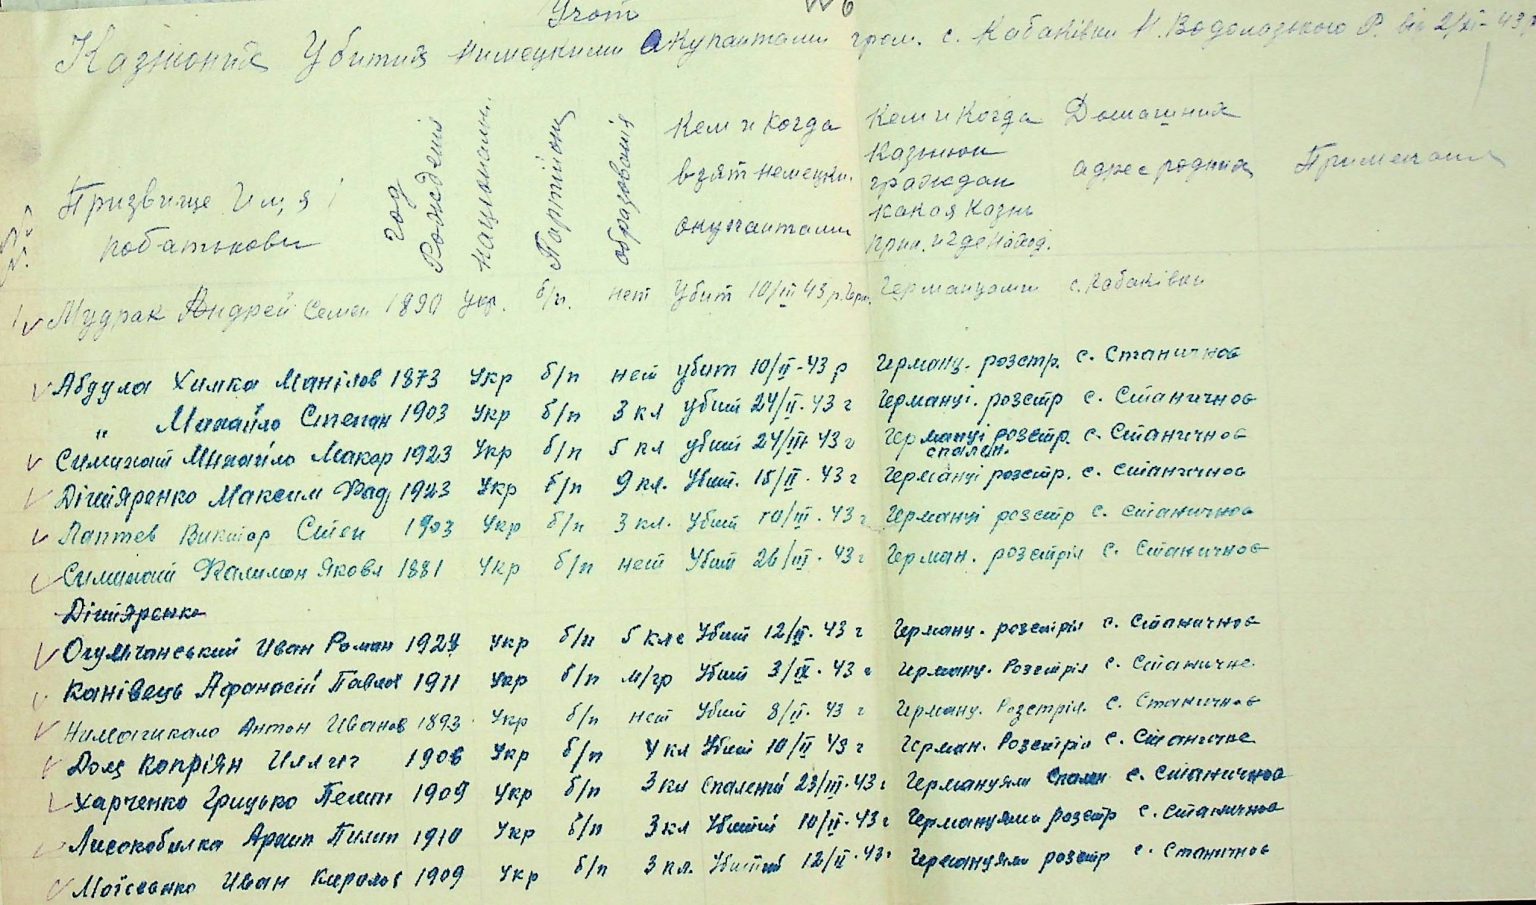 Учот
Казненик Убитих немецкими окупантами гром. с. Кабаківки Н. Водолазького Р. від 2/XI-43 р
Призвище Имя побатькови
год Рождения
национальн.
Партійни
образования
Кем и когда взят немецки. окупантами
Кем и Когда Казнион граждан какая казнь прим. и где наход.
Домашних адрес родних
Примечания
Мудрак Андрей Семен 1890 Укр. б/п. нет Убит 10/III 43 р. Германцами с. Кабаківки
Абдула Химка Манілов 1873 Укр б/п нет убит 10/II-43 р Герману. розстр. с. Станичное
" Михайло Степан 1903 Укр б/п 3 кл убит 24/II-43 г Германці. розстр с. Станичное
Михайло Макар 1923 Укр б/п 5 кл убит 24/III 43 г Германці розстр. спален. с. Станичное
Дігтяренко Максим Фад 1923 Укр б/п 9 кл. Убит. 15/II-43 г Германці розстр. с. Станичное
Лаптев Виктор Степ 1903 Укр б/п 3 кл. Убит 10/III-43 г Германці розстр с. Станичное
Филимон Яковл 1881 Укр б/п нет Убит 26/III-43 г Герман. розстріл с. Станичное
Дігтяренко
Огулчанський Иван Роман 1924 Укр б/п 5 клс Убит 12/II-43 г Герману. розстріл с. Станичное
Канівець Афанасій Павлов 1911 Укр б/п м/гр Убит 3/IX-43 г Герману. Розстріл с. Станичне
Антон Иванов 1893 Укр б/п нет Убит 8/II-43 г Герману. Розстріл. с. Станичное
Долц Копріян Иллич 1906 Укр б/п 4 кл Убит 10/II 43 г Герман. Розстріл с. Станичне
Харченко Грицько Пелип 1909 Укр б/п 3 кл Спалений 23/III-43 г Германцями Спален с. Станичное
Лисокобилка Архип Пилип 1910 Укр б/п 3 кл Убитий 10/II-43 г Германцями розстр с. Станичное
Моісеенко Иван Кирилов 1909 Укр б/п 3 кл. Убитий 12/II-43 г Германцями розстр с. Станичное